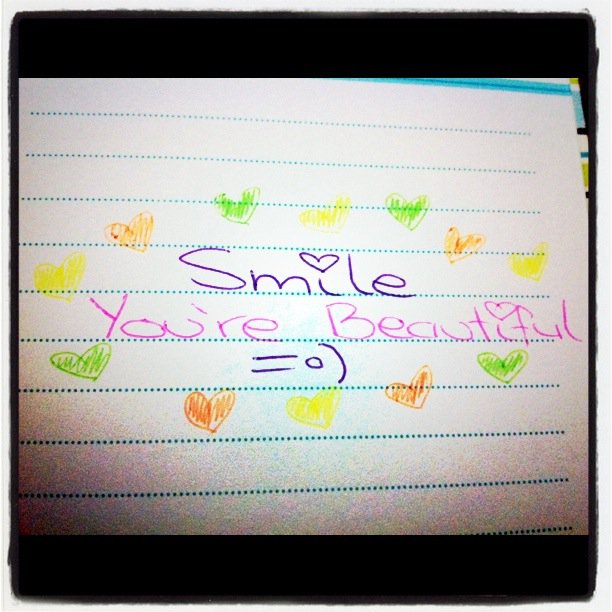 Smile
You're Beautiful
=o)